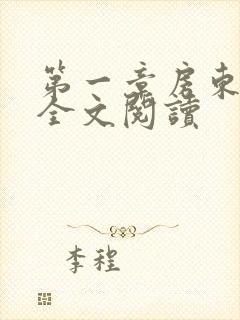 第一章房東
全文閱讀
李程